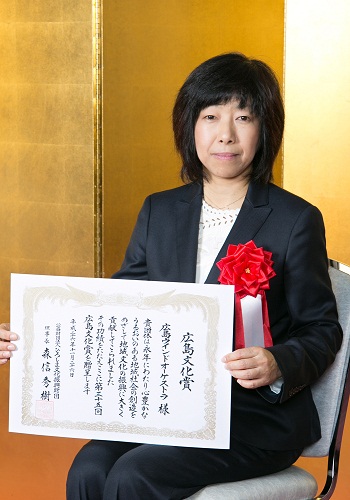 広島文化賞
広島ウインドオーケストラ 様
貴団体は永年にわたり心豊かな
うるおいのある地域社会の創造を
めざして地域文化の振興に大きく
貢献してこられました
その功績をたたえここに第三十五回
広島文化賞を贈呈します
平成二十六年十一月二十六日
公益財団法人ひろしま文化振興財団
理事長 森信秀樹